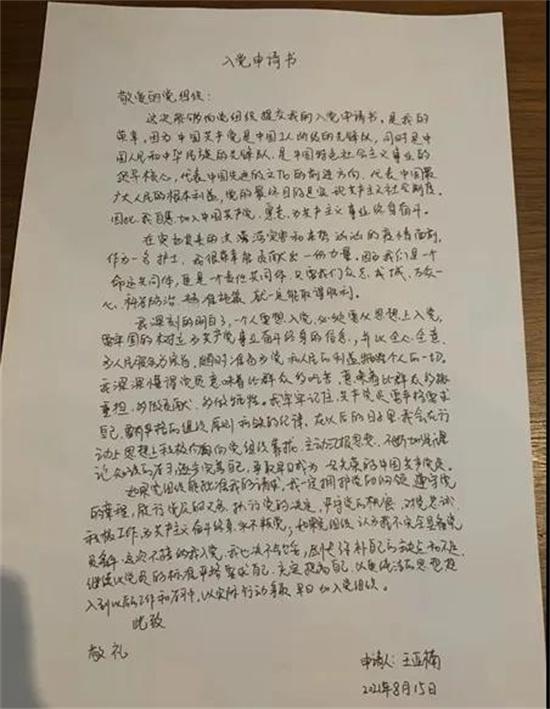 入党申请书
敬爱的党组织：
这次能够向党组织提交我的入党申请书，是我的
荣幸。因为中国共产党是中国工人阶级的先锋队，同时是中
国人民和中华民族的先锋队，是中国特色社会主义事业的
领导核心，代表中国先进的文化的前进方向，代表中国最
广大人民的根本利益，党的最终目的是实现共产主义社会制度。
因此，我自愿加入中国共产党，愿意为共产主义事业终身奋斗。
在突如其来的洪涝灾害和来势汹汹的疫情面前，
作为一名护士，我很荣幸能贡献出一份力量。因为我们是一个
命运共同体，更是一个责任共同体，只要我们众志成城、万众一
心、科学防治、精准施策，就一定能取得胜利。
我深刻的明白了，一个人要想入党，必须要从思想上入党，
要牢固的树立为共产党事业奋斗终身的信念，并以全心全意
为人民服务为宗旨，随时准备为党和人民的利益牺牲个人的一切。
我深深懂得党员意味着比群众多的吃苦，意味着比群众多的挑
重担，多做贡献，多做牺牲。我牢牢记住，共产党员要严格要求
自己，要有严格的组织原则和铁的纪律，在以后的日子里我会在行
动上思想上积极向党组织靠拢，主动汇报思想，不断加强理
论知识的学习，逐步完善自己，争取早日成为一名光荣的中国共产党员。
如果党组织能批准我的请求，我一定拥护党的纲领，遵守党
的章程，履行党员的义务，执行党的决定，严守党的机密，对党忠诚，
积极工作，为共产主义奋斗终身，永不叛党；如果党组织认为我不完全具备党
员条件，这次不接纳我入党，我也决不气馁，
继续以党员的标准严格要求自己，充实提高自己，
入到以后工作和学习中，以实际行动争取早日加入党组织。
此致
敬礼
申请人：王亚楠
2021年8月15日